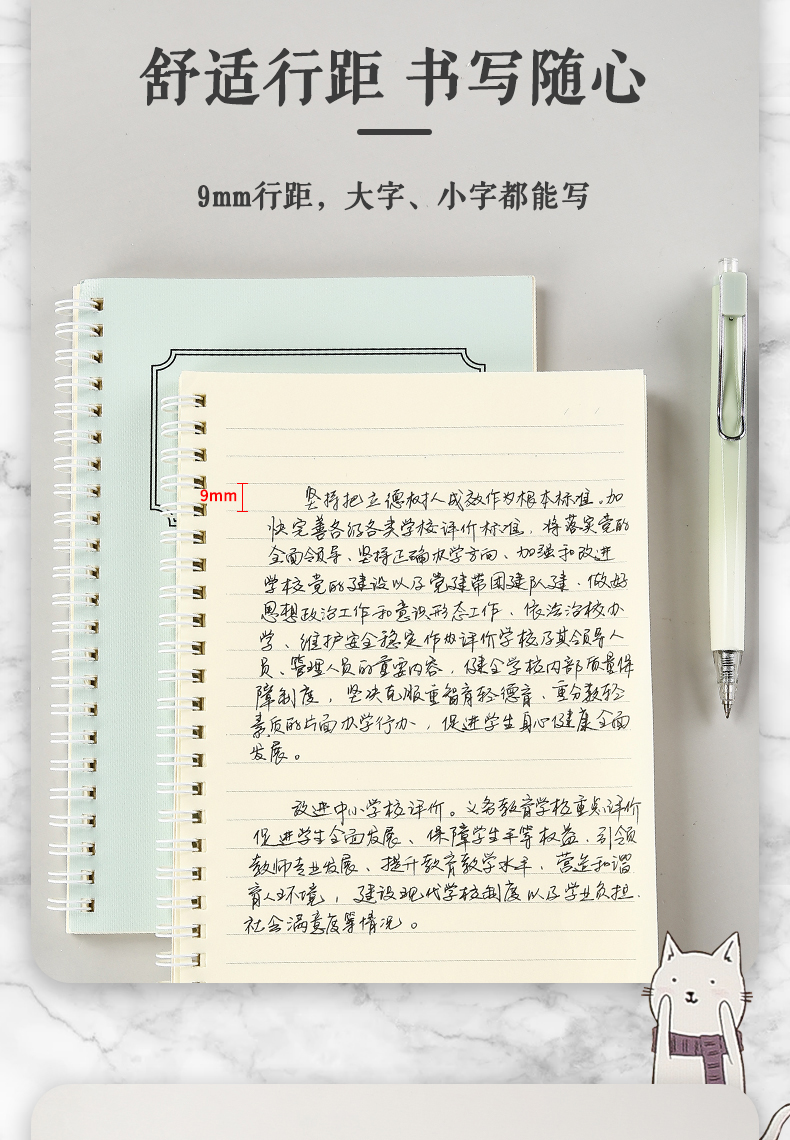 舒适行距 书写随心
9mm行距，大字、小字都能写
9mm
坚持把立德树人成效作为根本标准。加
快完善各级各类学校评价标准，将落实党的
全面领导、坚持正确办学方向、加强和改进
学校党的建设以及党建带团建队建、做好
思想政治工作和意识形态工作、依法治校办
学、维护安全稳定作为评价学校及其领导人
员、管理人员的重要内容，健全学校内部质量保
障制度，坚决克服重智育轻德育、重分数轻
素质的片面办学行为，促进学生身心健康全面
发展。
改进中小学校评价。义务教育学校重点评价
促进学生全面发展、保障学生平等权益、引领
教师专业发展、提升教育教学水平、营造和谐
育人环境，建设现代学校制度以及学业负担、
社会满意度等情况。